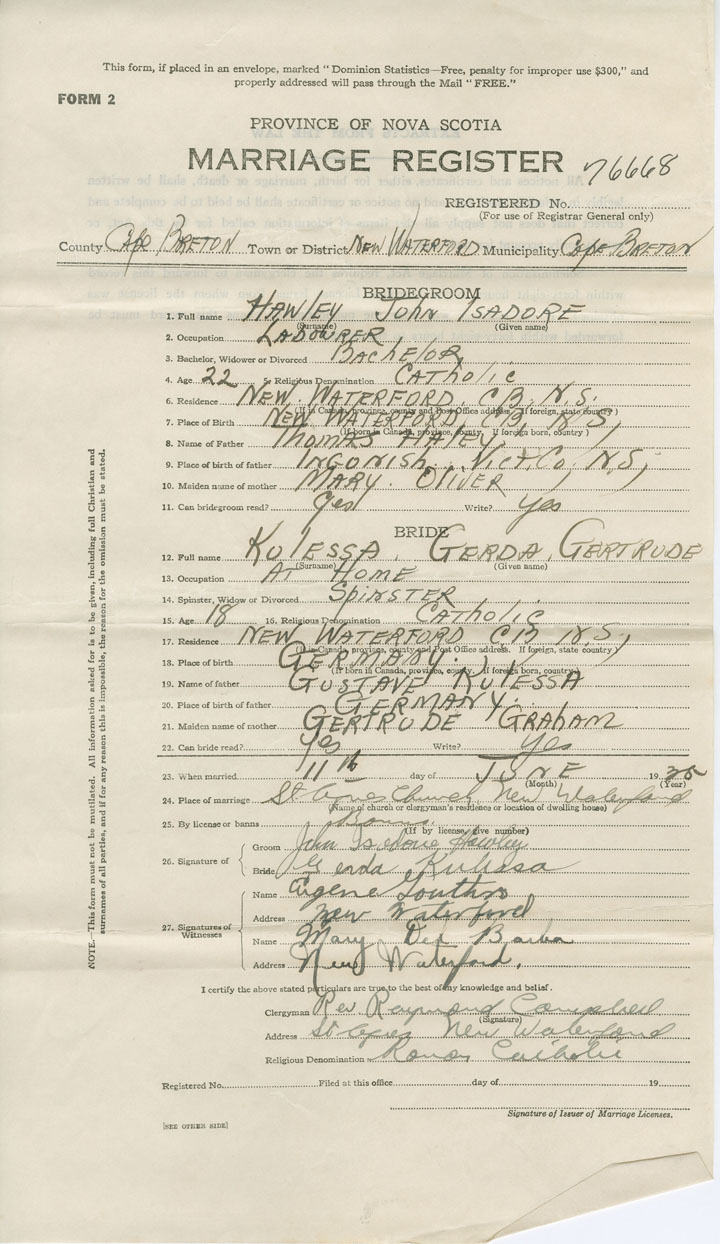 This form, if placed in an envelope, marked "Dominion Statistics—Free, penalty for improper use $300," and
properly addressed will pass through the Mail "FREE."
FORM 2
PROVINCE OF NOVA SCOTIA
MARRIAGE REGISTER 76668
REGISTERED No.
(For use of Registrar General only)
County Cape BRETON Town or District NEW WATERFORD Municipality Cape BRETON
BRIDEGROOM
1. Full name HAWLEY John ISADORE
(Surname) (Given name)
2. Occupation LABOURER
3. Bachelor, Widower or Divorced Bachelor
4. Age 22 5. Religious Denomination Catholic
6. Residence NEW WATERFORD, CB, N.S.
(If in Canada, province, county and Post Office address. If foreign, state country)
7. Place of Birth NEW WATERFORD, CB, N.S,
(If born in Canada, province, county. If foreign born, country)
8. Name of Father Thomas
9. Place of birth of father INGONISH, Vict. Co, N.S,
10. Maiden name of mother MARY OLIVER
11. Can bridegroom read? yes Write? yes
BRIDE
12. Full name KULESSA. GERDA GERTRUDE
(Surname) (Given name)
13. Occupation AT HOME
14. Spinster, Widow or Divorced SPINSTER
15. Age 18 16. Religious Denomination Catholic
17. Residence NEW WATERFORD CB N.S,
(If in Canada, province, county and Post Office address. If foreign, state country)
18. Place of birth GERMANY.
(If born in Canada, province, county. If foreign born, country)
19. Name of father GUSTAVE KULESSA
20. Place of birth of father GERMANY.
21. Maiden name of mother GERTRUDE GRAHAM
22. Can bride read? Yes Write? Yes
23. When married 11th day of JUNE 19
(Month) (Year)
24. Place of marriage St Agnes Church, New Waterford
(Name of church or clergyman's residence or location of dwelling house)
25. By license or banns Banns
(If by license, give number)
26. Signature of
Groom John Isadore Hawley
Bride Gerda Kulessa
27. Signatures of Witnesses
Name Eugene
Address New Waterford
Name Mary
Address New Waterford.
I certify the above stated particulars are true to the best of my knowledge and belief.
Clergyman Rev Raymond Campbell
(Signature)
Address St Agnes New Waterford
Religious Denomination Roman Catholic
Registered No. Filed at this office day of 19
Signature of Issuer of Marriage Licenses.
[SEE OTHER SIDE]
NOTE.—This form must not be mutilated. All information asked for is to be given, including full Christian and
surnames of all parties, and if for any reason this is impossible, the reason for the omission must be stated.